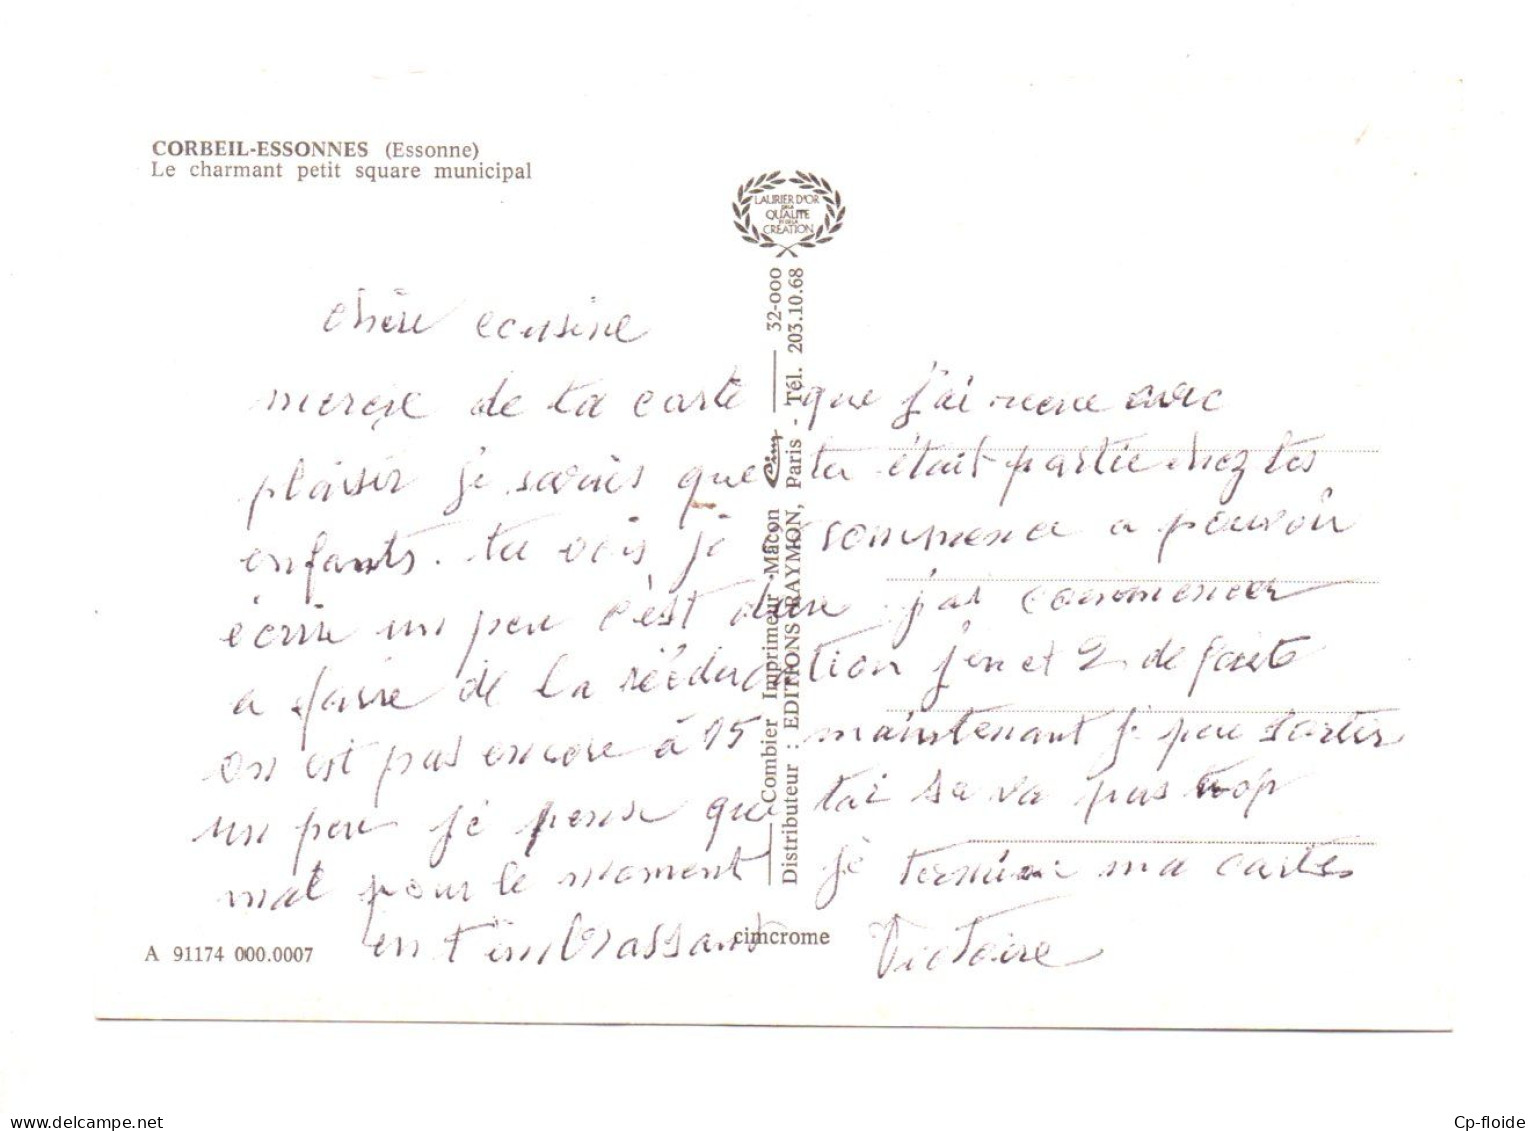 CORBEIL-ESSONNES (Essonne)
Le charmant petit square municipal
LAURIER D'OR
DE LA
QUALITE
ET DE LA
CREATION
chère cousine
mercie de ta carte que j'ai recue avec
plaisir je savais que tu était partie chez tes
enfants. tu vois je commence a pouvoir
écrire un peu c'est dure j'ai commencer
a faire de la rééducation j'en et 2 de faite
on est pas encore à 15 maintenant je peu sortir
un peu je pense que toi sa va pas trop
mal pour le moment je termine ma cartes
en t'embrassant Victoire
Combier Imprimeur Mâcon Cim 32-000
Distributeur : EDITIONS RAYMON, Paris - Tél. 203.10.68
A 91174 000.0007
cimcrome
delcampe.net
Cp-floide